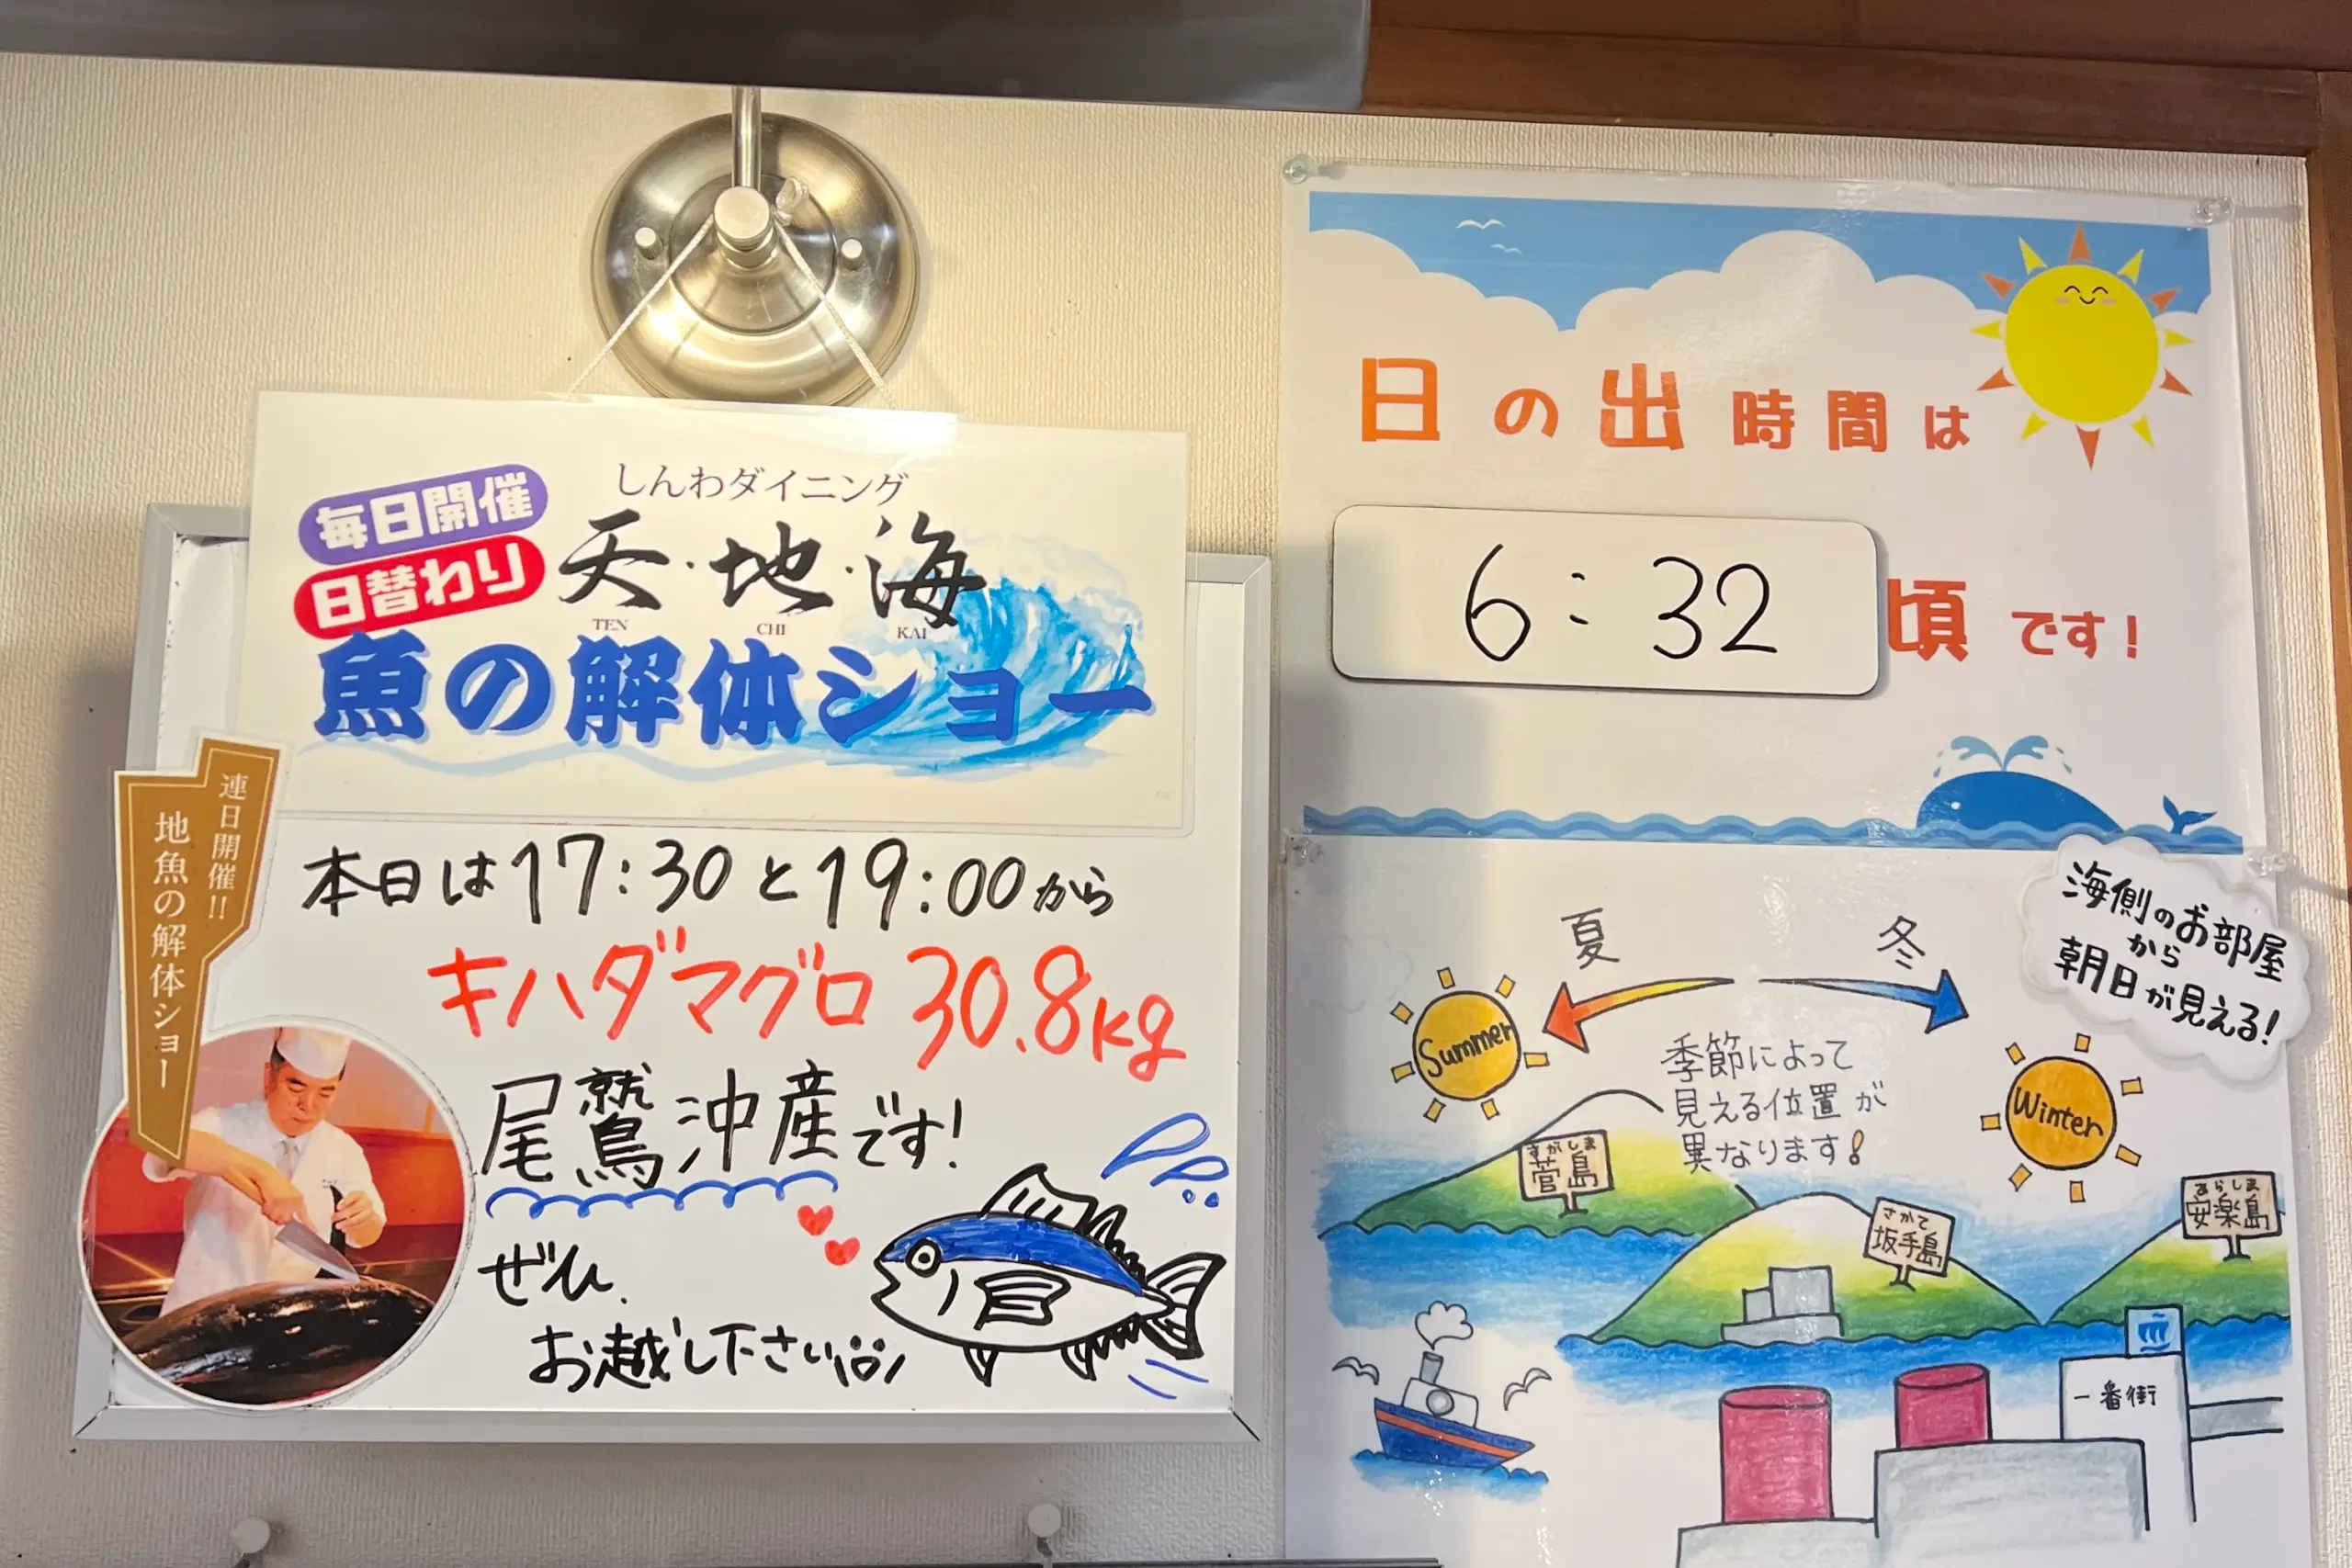 毎日開催
日替わり
しんわダイニング
天・地・海
TEN CHI KAI
魚の解体ショー
連日開催!!
地魚の解体ショー
本日は17:30と19:00から
キハダマグロ 30.8kg
尾鷲沖産です!
ぜひ、
お越し下さい
日の出時間は
6:32頃です!
海側のお部屋
から
朝日が見える!
夏
冬
Summer
Winter
季節によって
見える位置が
異なります!
すがしま
菅島
さかて
坂手島
あらしま
安楽島
一番街